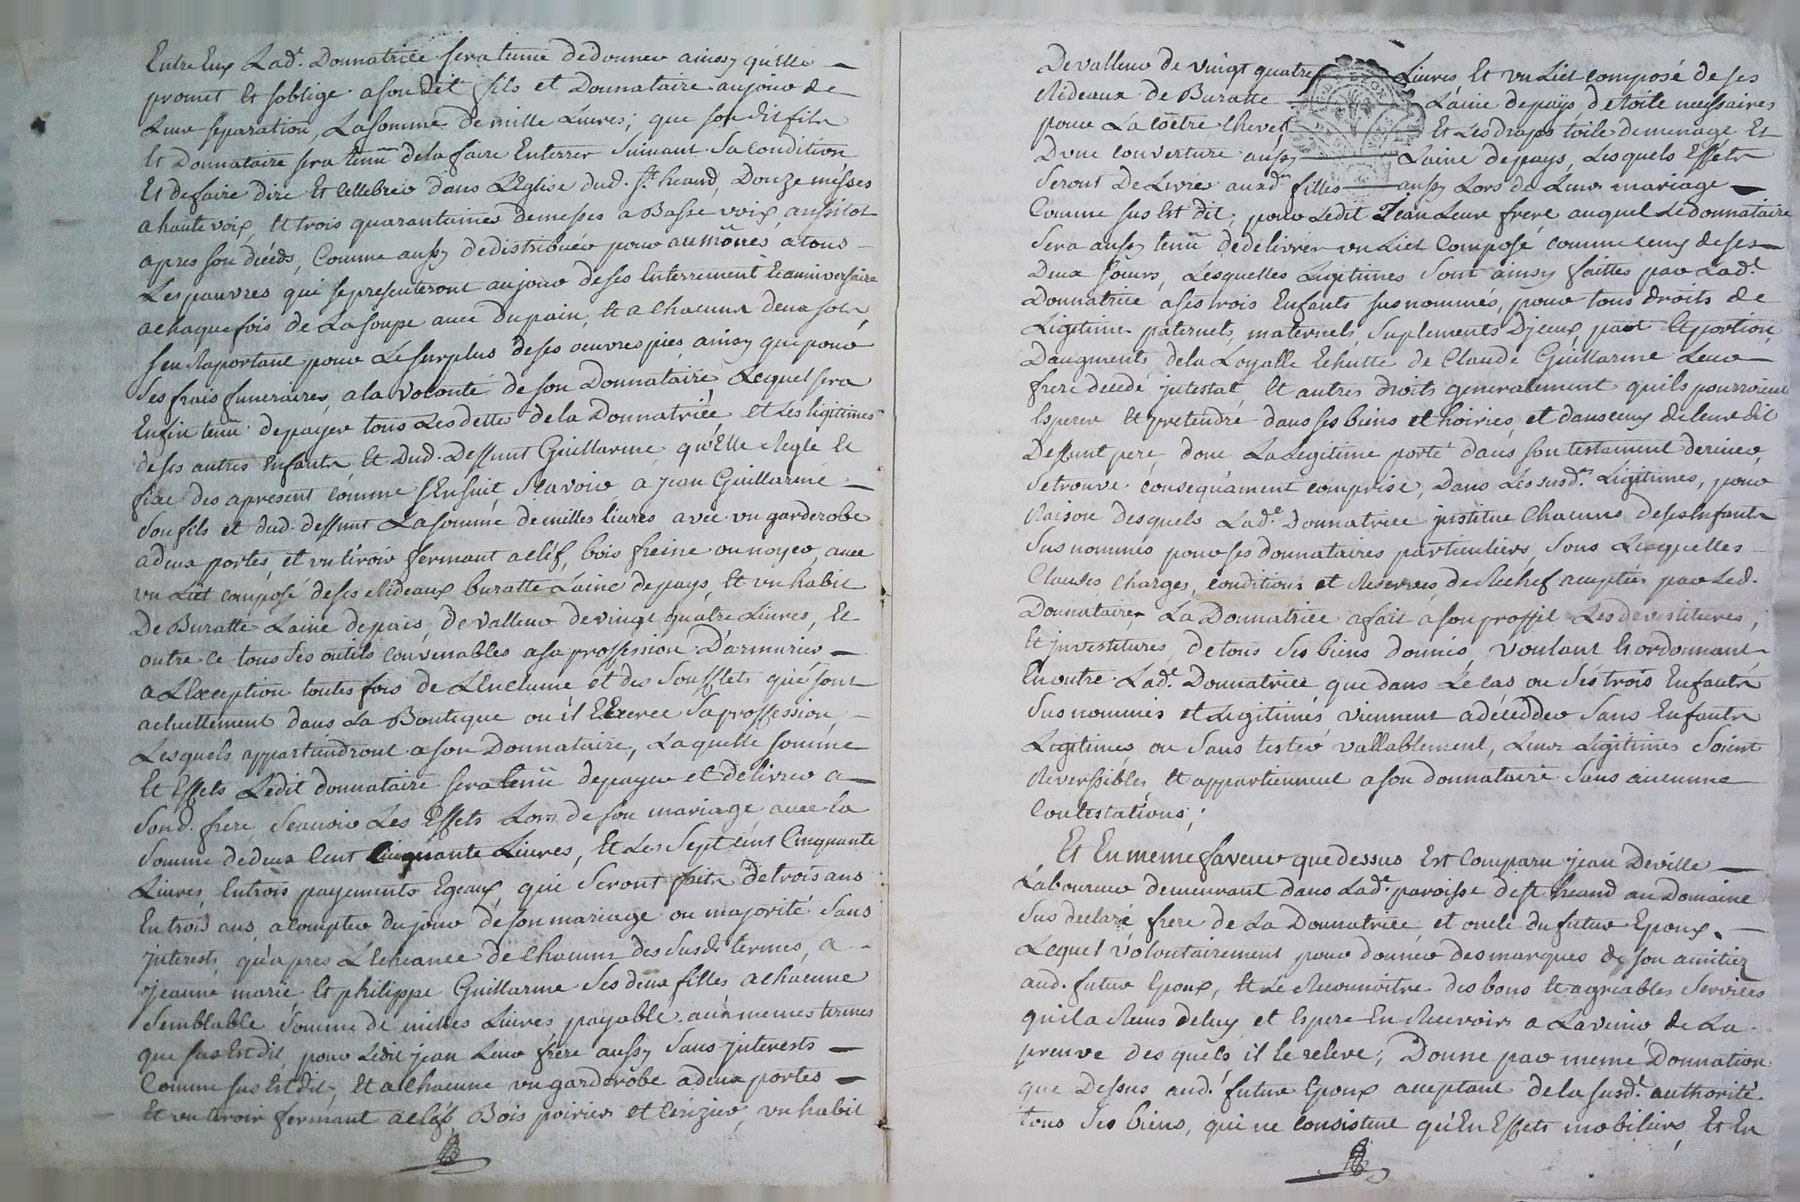 Entre Eux Lad.e Donnatrice sera tenue de donner ainsy qu'elle
promet Et s'oblige a son dit fils et Donnataire au jour de
Leur separation, La somme de mille Livres; que son dit fils
Et Donnataire sera tenü de la faire Enterrer Suivant Sa condition
Et de faire dire Et cellebrer dans L'Eglise dud. St heand, Douze messes
a haute voix, Et trois quarantaines de messes a Basse voix, aussitot
apres son décéds, Comme aussy de distribuer pour aumônes, a tous
Les pauvres qui se presenteront au jour de ses Enterrement Et anniversaire
a chaque fois de La soupe avec du pain, Et a Chacun deux sols
s'en Raportant pour Le surplus de ses oeuvres pies, ainsy que pour
Ses frais funeraires, a la volonté de son Donnataire, Lequel sera
Enfin tenü de payer tous Les dettes de la Donnatrice et Les légitimes
de ses autres Enfants Et Dud. Deffunt Guillarme, qu'Elle Regle Et
fixe des apresent comme s'Ensuit, Scavoir a jean Guillarme
Son fils et dud. deffunt La somme de milles livres avec un garderobe
a deux portes, et un tiroir fermant a cléf, bois freine ou noyer, avec
un Liét composé de ses Rideaux buratte Laine de pays, Et un habit
De Buratte Laine de païs, de valleur de vingt quatre Livres, Et
outre ce tous Ses outils convenables a sa proffession D'armurier
a L'Exception toutes fois de L'Enclume et des Soufflets qui sont
actuellement dans La Boutique ou il Exerce Sa proffession,
Lesquels appartiendront a son Donnataire, Laquelle somme
Et Effets Ledit donnataire sera tenü de payer et delivrer a
Sond. frere, Scavoir Les Effets Lors de son mariage avec la
Somme de deux Cent Cinquante Livres, Et Les Sept cent Cinquante
Livres, En trois payements Egeaux qui Seront faits de trois ans
En trois ans a compter du jour de son mariage ou majorité Sans
jnterests qu'apres L'Echeance de Chacun des Susd. termes, a
Jeanne marie, Et philippe Guillarme Ses deux filles a chacune
Semblable Somme de milles Livres payable aux memes termes
que sus Est dit, pour Ledit jean Leur frère aussy Sans jnterests
Comme sus Est dit, Et a Chacune un garderobe a deux portes
Et un tiroir fermant a cléf, Bois poirier et Cerizier, un habit
De valleur de vingt quatre Livres Et un Liét composé de ses
Rideaux de Buratte Laine de païs de toile necessaires
pour La Chevet Et Les draps toile de menage Et
D'une couverture aussy Laine de pays, Lesquels Effets
Seront Delivrés auxd. filles aussy Lors de Leur mariage
Comme sus Est dit, pour Ledit Jean Leur frere, auquel Le donnataire
Sera aussy tenü de delivrer un Liét Composé comme ceux de ses
Deux soeurs, Lesquelles Legitimes Sont ainsy faittes par Lad.e
Donnatrice a ses trois Enfants sus nommés, pour tous droits de
Legitime paternels, maternels, Suplements D'jceux, part Et portion
D'augment, de la Loyalle Echutte de Claude Guillarme Leur
frere décédé jntestat, Et autres droits generalement qu'ils pourroient
Esperer Et pretendre dans ses biens et hoiries, et dans ceux de leur dit
Deffunt pere, dont La Legitime porté dans son testament dernier
Se trouve consequament comprise, Dans Les susd.s Légitimes, pour
Raison desquels Lad.e Donnatrice jnstitue Chacuns de ses Enfants
Sus nommés pour ses donnataires particuliers, Sous Lesquelles
Clauses charges, conditions et Reserves, de Rechef acceptées par Led.
Donnataire La Donnatrice a fait a son proffit Les devestitures,
Et jnvestitures, de tous Ses biens donnés, voulant Et ordonnant
En outre Lad.e Donnatrice que dans Le cas ou Ses trois Enfants
Sus nommés et Légitimés viennent a décedder Sans Enfants
Légitimes, ou Sans tester vallablement, Leurs Légitimes Soient
Reversibles, Et appartiennent a son donnataire Sans aucunne
Contestations;
Et En meme faveur que dessus Est Comparu jean Deville
Laboureur demeurant dans Lad.e paroisse de St heand au Domaine
Sus declaré frere de La Donnatrice et oncle du futur Epoux,
Lequel volontairement pour donner des marques de son amitiez
aud. futur Epoux, Et Le Reconnoitre des bons Et agreables Services
qu'il a Reçus de luy et Espere En Recevoir a L'avenir, de La
preuve des quels il le releve; Donne par meme Donnation
que Dessus aud. futur Epoux acceptant de la susd.e authorité
tous Ses biens, qui ne consistent qu'En Effets mobiliers, Et En